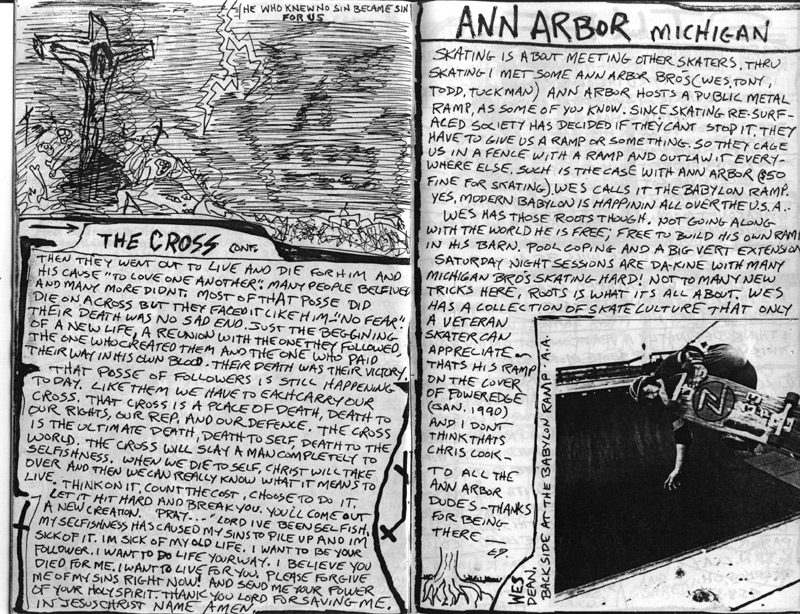 HE WHO KNEW NO SIN BECAME SIN
FOR US
THE CROSS CONT.
THEN THEY WENT OUT TO LIVE AND DIE FOR HIM AND
HIS CAUSE "TO LOVE ONE ANOTHER". MANY PEOPLE BELEIVED
AND MANY MORE DIDNT. MOST OF THAT POSSE DID
DIE ON A CROSS BUT THEY FACED IT LIKE HIM - "NO FEAR".
THEIR DEATH WAS NO SAD END. JUST THE BEGGINING
OF A NEW LIFE, A REUNION WITH THE ONE THEY FOLLOWED
THE ONE WHO CREATED THEM AND THE ONE WHO PAID
THEIR WAY IN HIS OWN BLOOD. THEIR DEATH WAS THEIR VICTORY.
THAT POSSE OF FOLLOWERS IS STILL HAPPENING
TO DAY. LIKE THEM WE HAVE TO EACH CARRY OUR
CROSS. THAT CROSS IS A PLACE OF DEATH, DEATH TO
OUR RIGHTS, OUR REP, AND OUR DEFENCE. THE CROSS
IS THE ULTIMATE DEATH, DEATH TO SELF, DEATH TO THE
WORLD. THE CROSS WILL SLAY A MAN COMPLETELY TO
SELFISHNESS. WHEN WE DIE TO SELF, CHRIST WILL TAKE
OVER AND THEN WE CAN REALLY KNOW WHAT IT MEANS TO
LIVE.
THINK ON IT, COUNT THE COST, CHOOSE TO DO IT.
LET IT HIT HARD AND BREAK YOU. YOU'LL COME OUT
A NEW CREATION. PRAY..." LORD IVE BEEN SELFISH,
MY SELFISHNESS HAS CAUSED MY SINS TO PILE UP AND IM
SICK OF IT. IM SICK OF MY OLD LIFE. I WANT TO BE YOUR
FOLLOWER. I WANT TO DO LIFE YOUR WAY. I BELIEVE YOU
DIED FOR ME. I WANT TO LIVE FOR YOU. PLEASE FORGIVE
ME OF MY SINS RIGHT NOW! AND SEND ME YOUR POWER
OF YOUR HOLY SPIRIT. THANK YOU LORD FOR SAVING ME.
IN JESUS CHRIST NAME AMEN.
ANN ARBOR MICHIGAN
SKATING IS ABOUT MEETING OTHER SKATERS. THRU
SKATING I MET SOME ANN ARBOR BRO'S (WES, TONY,
TODD, TUCKMAN) ANN ARBOR HOSTS A PUBLIC METAL
RAMP, AS SOME OF YOU KNOW. SINCE SKATING RE-SURF-
ACED SOCIETY HAS DECIDED IF THEY CANT STOP IT, THEY
HAVE TO GIVE US A RAMP OR SOMETHING. SO THEY CAGE
US IN A FENCE WITH A RAMP AND OUTLAW IT EVERY-
WHERE ELSE. SUCH IS THE CASE WITH ANN ARBOR ($50
FINE FOR SKATING). WES CALLS IT THE BABYLON RAMP.
YES, MODERN BABYLON IS HAPPININ ALL OVER THE U.S.A..
WES HAS THOSE ROOTS THOUGH. NOT GOING ALONG
WITH THE WORLD HE IS FREE, FREE TO BUILD HIS OWN RAMP
IN HIS BARN. POOL COPING AND A BIG VERT EXTENSION
SATURDAY NIGHT SESSIONS ARE DA-KINE WITH MANY
MICHIGAN BRO'S SKATING HARD! NOT TO MANY NEW
TRICKS HERE, ROOTS IS WHAT IT'S ALL ABOUT. WES
HAS A COLLECTION OF SKATE CULTURE THAT ONLY
A VETERAN
SKATER CAN
APPRECIATE -
THATS HIS RAMP
ON THE COVER
OF POWEREDGE
(JAN. 1990)
AND I DONT
THINK THATS
CHRIS LOOK -
TO ALL THE
ANN ARBOR
DUDES - THANKS
FOR BEING
THERE -
WES DEAN,
BACKSIDE AT THE BABYLON RAMP. A.A.
Z